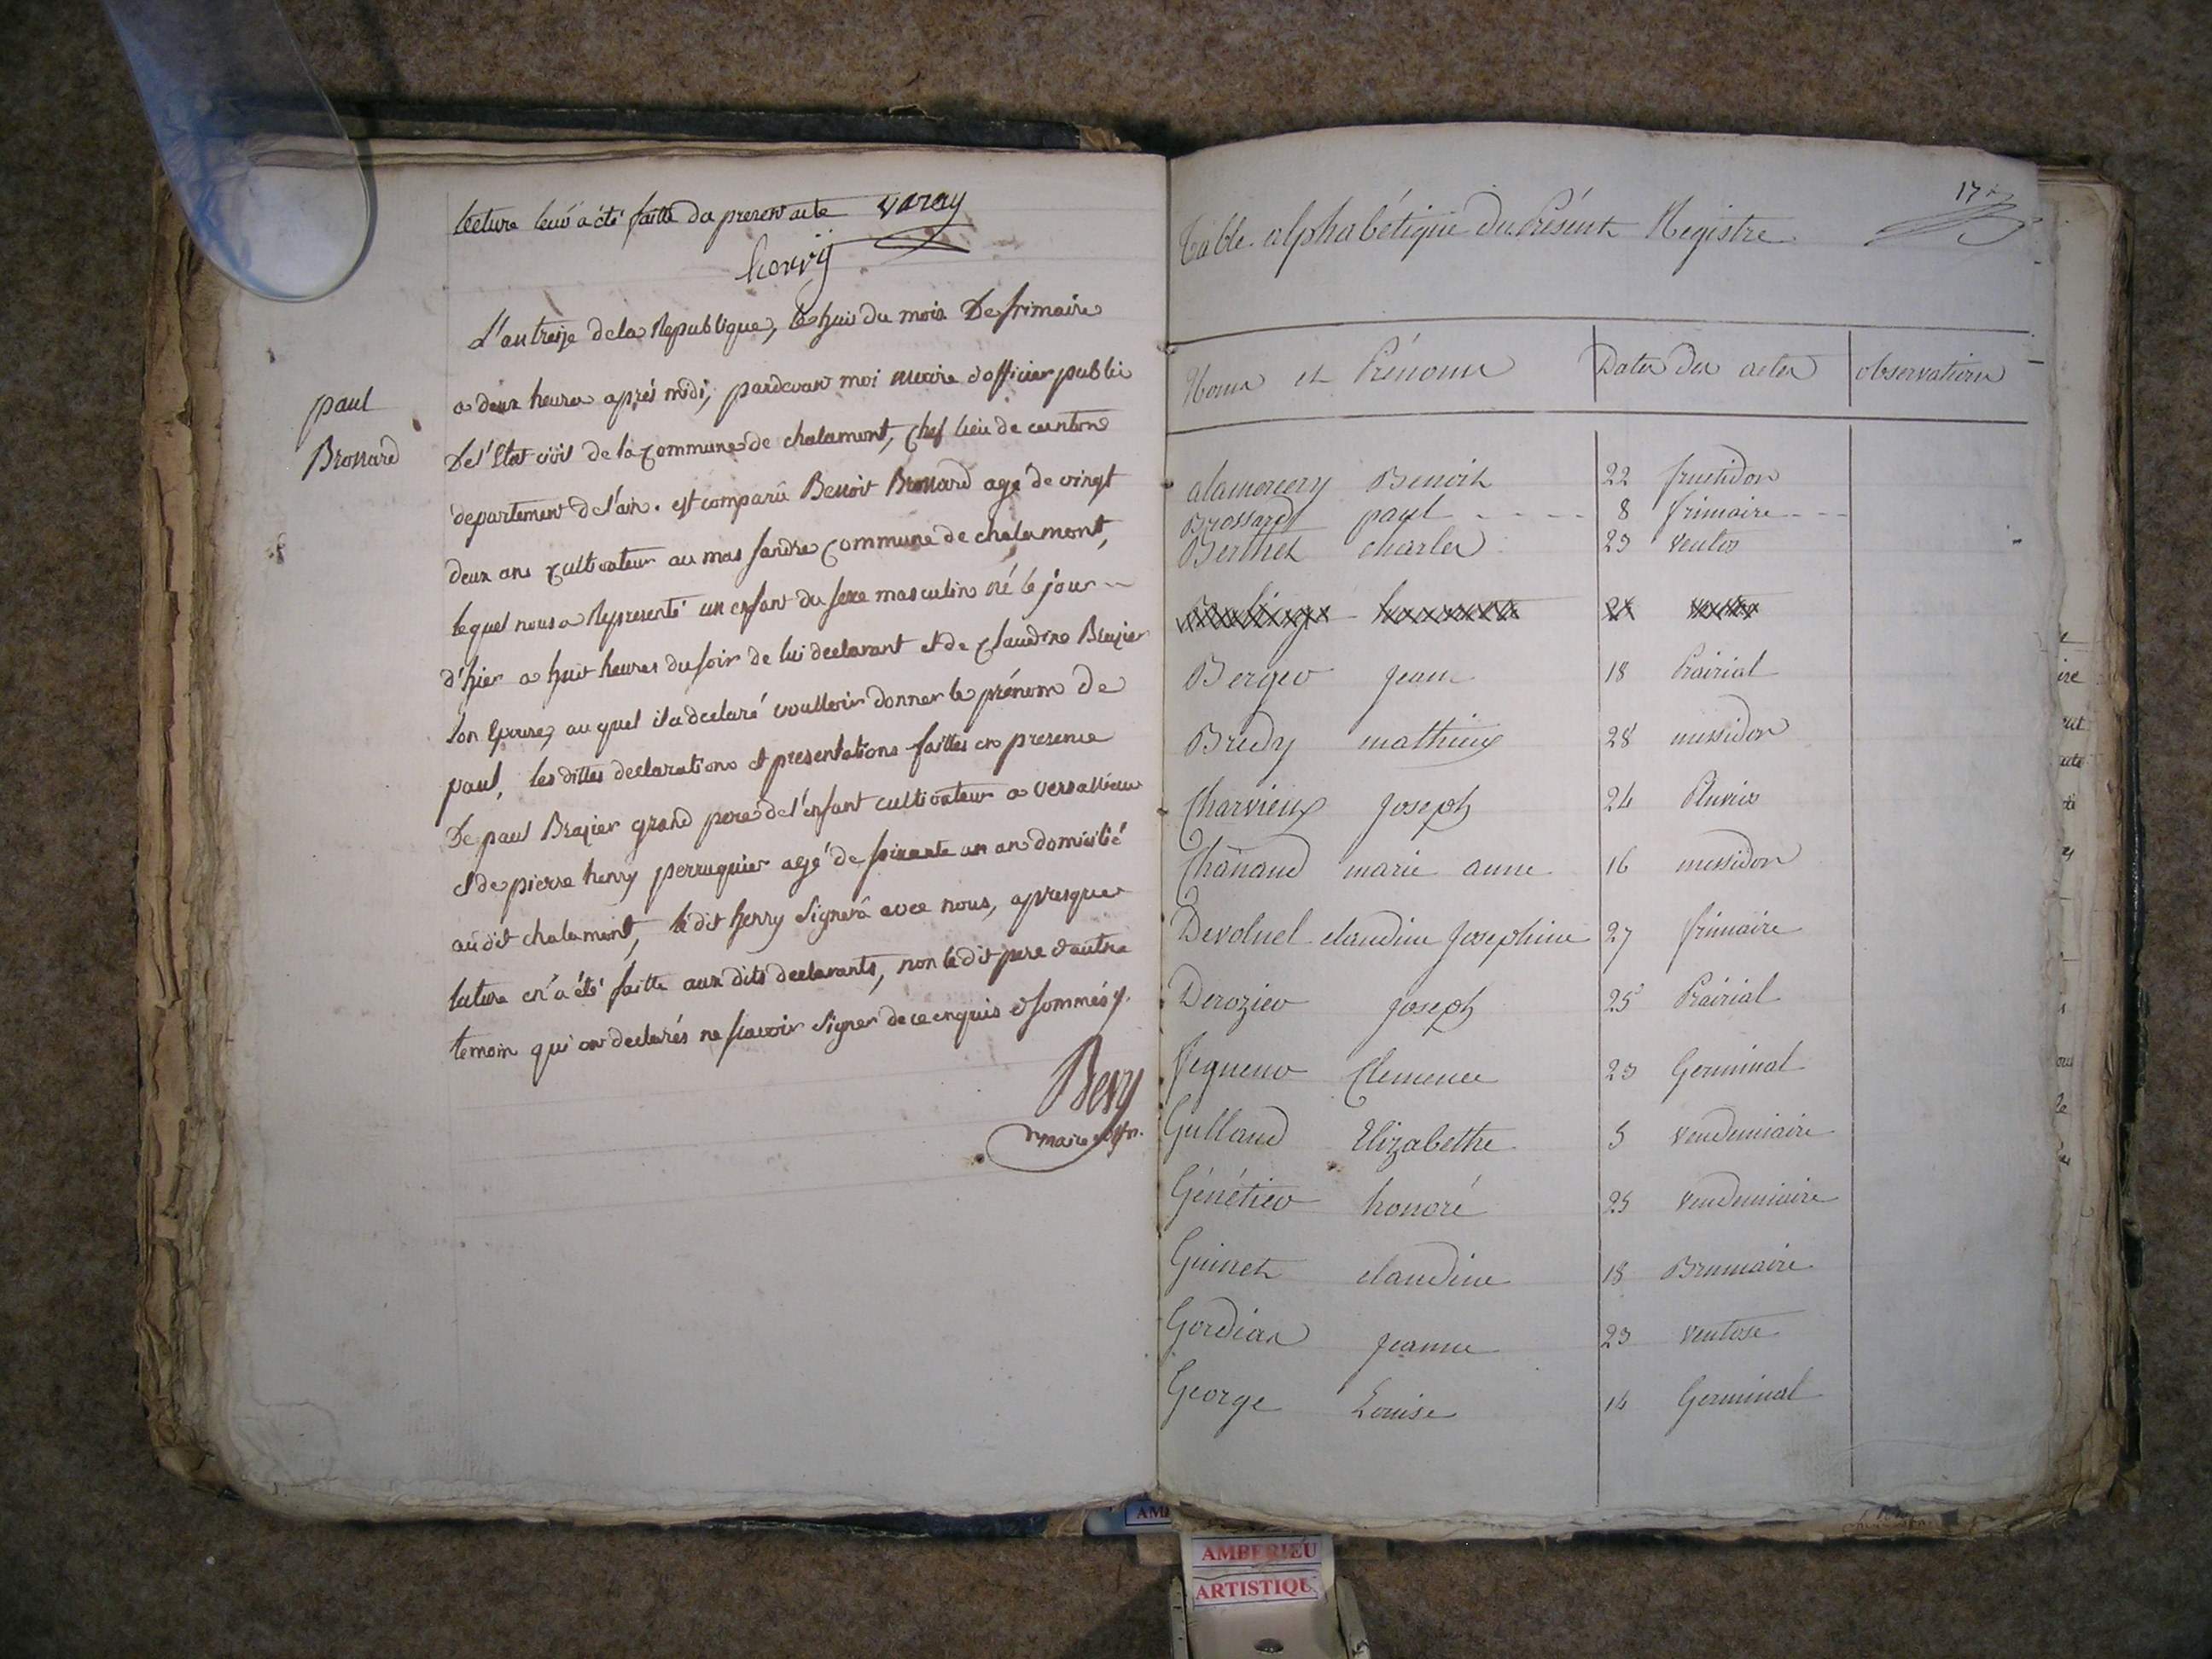 lecture leur a été faitte du present acte varay
henry
L'an treize de la Republique, le huit du mois De frimaire
a deux heures après midi, pardevant moi maire & officier public
De l'Etat civil de la commune de chalamont, chef lieu de canton
departement de l'ain. est comparu Benoit Brossard agé de vingt
deux ans cultivateur au mas sandre commune de chalamont,
lequel nous a Representé un enfant du sexe masculin né le jour
d'hier a huit heures du soir de lui declarant et de claudine Brazier
son Epouse, au quel il a declaré voulloir donner le prénom de
paul, les dittes declarations et presentations faittes en presence
De paul Brazier grand pere de l'enfant cultivateur a versallieux
et de pierre henry perruquier agé de soixante un an domicilié
au dit chalamont, le dit henry signera avec nous, apres que
lecture en a été faitte aux dits declarants, non le dit pere & autre
temoin qui ont declarés ne scavoir signer de ce enquis & sommés.
paul
Brossard
maire & offr.
17
Table alphabétique du Présent Registre
Noms et Prénoms Dates des actes observations
alamercery Benoit 22 fructidor
Brossard paul - - - - 8 frimaire - -
Berthet charles 23 ventos
Berger jean 18 Prairial
Bredy mathieux 28 messidor
Charvieux joseph 24 Pluvios
Chanand marie anne 16 messidor
Devoluel claudine josephine 27 frimaire
Derozier joseph 25 Prairial
Clemence 23 Germinal
Gulland Elizabethe 5 vendemiaire
Génétier honoré 25 vendemiaire
Guinet claudine 18 Brumaire
Gordian jeanne 23 ventose
George Louise 14 Germinal
AMBERIEU
ARTISTIQU